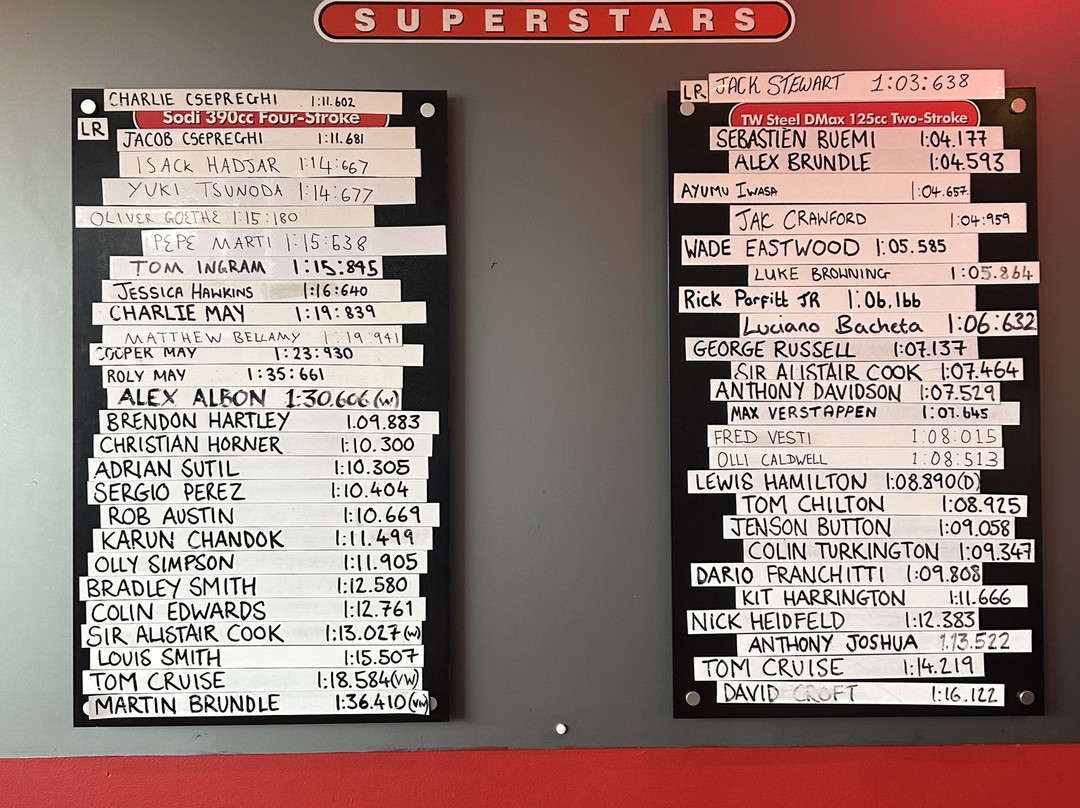 SUPERSTARS
CHARLIE CSEPREGHI 1:11.602
Sodi 390cc Four-Stroke
LR
JACOB CSEPREGHI 1:11.681
ISACK HADJAR 1:14:667
YUKI TSUNODA 1:14:677
OLIVER GOETHE 1:15:180
PEPE MARTI 1:15:538
TOM INGRAM 1:15:895
JESSICA HAWKINS 1:16:640
CHARLIE MAY 1:19:839
MATTHEW BELLAMY 1:19:941
COOPER MAY 1:23:930
ROLY MAY 1:35:661
ALEX ALBON 1:30.606(W)
BRENDON HARTLEY 1.09.883
CHRISTIAN HORNER 1:10.300
ADRIAN SUTIL 1:10.305
SERGIO PEREZ 1:10.404
ROB AUSTIN 1:10.669
KARUN CHANDOK 1:11.499
OLLY SIMPSON 1:11.905
BRADLEY SMITH 1:12.580
COLIN EDWARDS 1:12.761
SIR ALISTAIR COOK 1:13.027(W)
LOUIS SMITH 1:15.507
TOM CRUISE 1:18.584(VW)
MARTIN BRUNDLE 1:36.410(VW)
LR
JACK STEWART 1:03:638
TW Steel DMax 125cc Two-Stroke
SEBASTIEN BUEMI 1:04.177
ALEX BRUNDLE 1:04.593
AYUMU IWASA 1:04.657
JAK CRAWFORD 1:04.959
WADE EASTWOOD 1:05.585
LUKE BROWNING 1:05.864
Rick Parfitt JR 1:06.166
Luciano Bacheta 1:06:632
GEORGE RUSSELL 1:07.137
SIR AlISTAIR COOK 1:07.464
ANTHONY DAVIDSON 1:07.529
MAX VERSTAPPEN 1:07.645
FRED VESTI 1:08:015
OLLI CALDWELL 1:08:513
LEWIS HAMILTON 1:08.890(D)
TOM CHILTON 1:08.925
JENSON BUTTON 1:09.058
COLIN TURKINGTON 1:09.347
DARIO FRANCHITTI 1:09.808
KIT HARRINGTON 1:11.666
NICK HEIDFELD 1:12.383
ANTHONY JOSHUA 1.13.522
TOM CRUISE 1:14.219
DAVID CROFT 1:16.122